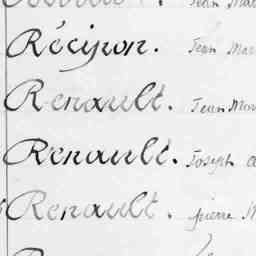 Jean Mar
Récipon. Jean Mar
Renault. Jean Mar
Renault. Joseph
Renault. pierre M